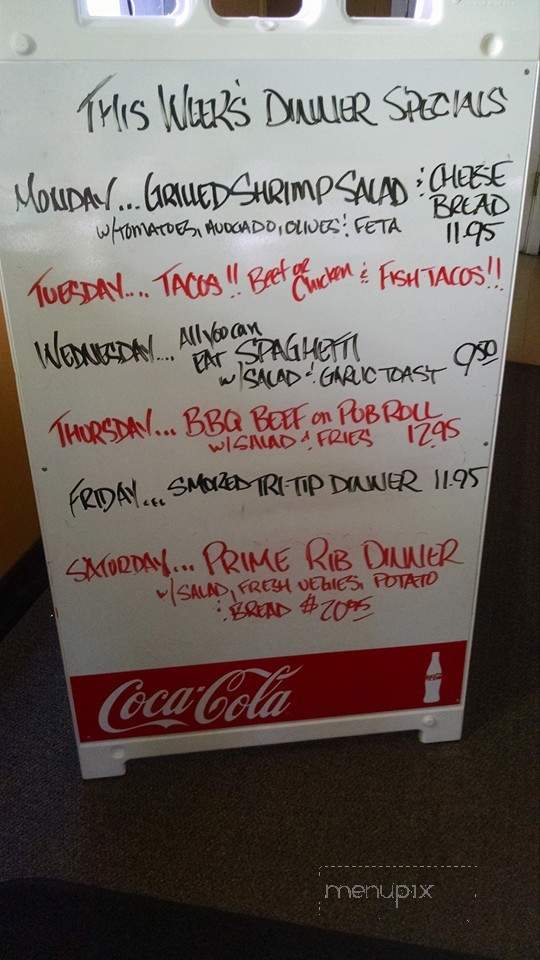 THIS WEEK'S DINNER SPECIALS
MONDAY... GRILLED SHRIMP SALAD & CHEESE BREAD
W/TOMATOES, AVOCADO, OLIVES & FETA 11.95
TUESDAY.... TACOS!! Beef or Chicken & FISH TACOS!!
WEDNESDAY... All you can EAT SPAGHETTI 9.50
W/SALAD & GARLIC TOAST
THURSDAY... BBQ BEEF on PUB ROLL
W/SALAD & FRIES 12.95
FRIDAY... SMOKED TRI-TIP DINNER 11.95
SATURDAY... PRIME RIB DINNER
W/SALAD, FRESH VEGIES, POTATO
& BREAD $20.95
Coca-Cola
menupix